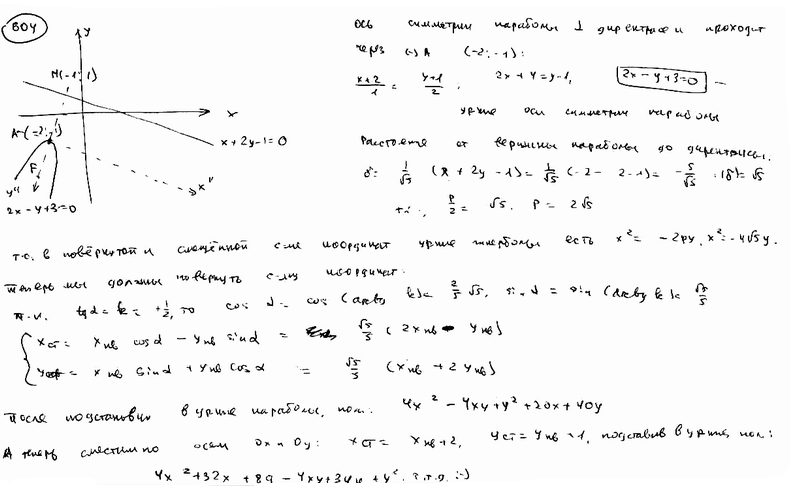 804
y
N(-1; 1)
x
A-(-2; -1)
x + 2y - 1 = 0
F
y"
x"
2x - y + 3 = 0
ось симметрии параболы ⊥ директрисе и проходит
через (·) A (-2; -1):
x+2/1 = y+1/2; 2x + 4 = y - 1, 2x - y + 3 = 0 —
ур-ие оси симметрии параболы
Расстояние от вершины параболы до директрисы.
δ = 1/√5 (x + 2y - 1) = 1/√5 (-2 - 2 - 1) = -5/√5 : |δ| = √5
т.е., p/2 = √5. p = 2√5
т.о. в повёрнутой и смещённой с-ме координат ур-ие гиперболы есть x² = -2py, x² = -4√5y.
Теперь мы должны повернуть с-му координат.
т.к. tg α = k = +1/2, то cos α = cos (arctg k) = 2/5 √5, sin α = sin (arctg k) = √5/5
xст = xнв cos α - yнв sin α = √5/5 (2xнв - yнв)
yст = xнв sin α + yнв cos α = √5/5 (xнв + 2yнв)
После подстановки в ур-ие параболы, пол: 4x² - 4xy + y² + 20x + 40y
А теперь сместим по осям Ox и Oy: xст = xнв + 2, yст = yнв + 1, подставив в ур-ие, пол:
4x² + 32x + 89 - 4xy + 34y + y². ч.т.д. :-)